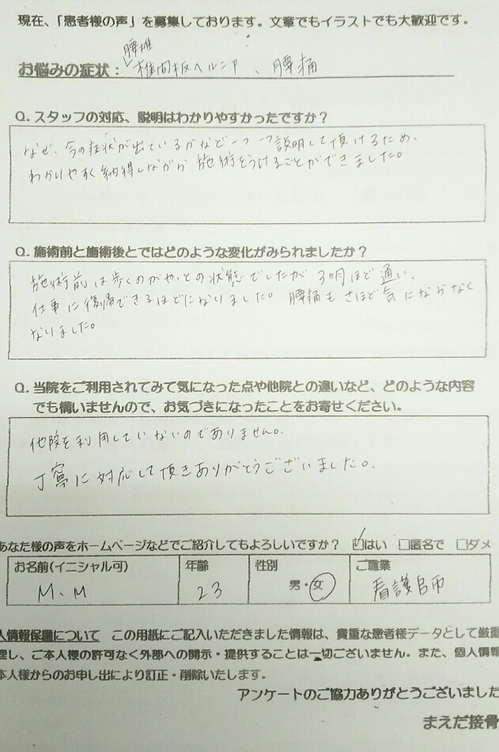 現在、「患者様の声」を募集しております。文章でもイラストでも大歓迎です。
腰椎
お悩みの症状：椎間板ヘルニア、腰痛
Q. スタッフの対応、説明はわかりやすかったですか？
なぜ、今の症状が出ているかなど一つ一つ説明して頂けるため、
わかりやすく納得しながら施術をうけることができました。
Q. 施術前と施術後とではどのような変化がみられましたか？
施術前は歩くのがやっとの状態でしたが3ヶ月ほど通い、
仕事に復帰できるほどになりました。腰痛もさほど気にならなく
なりました。
Q. 当院をご利用されてみて気になった点や他院との違いなど、どのような内容
でも構いませんので、お気づきになったことをお寄せください。
他院を利用していないのでありません。
丁寧に対応して頂きありがとうございました。
あなた様の声をホームページなどでご紹介してもよろしいですか？ ☑はい □匿名で □ダメ
お名前(イニシャル可) 年齢 性別 ご職業
M.M 23 男・女 看護師
人情報保護について この用紙にご記入いただきました情報は、貴重な患者様データとして厳重
理し、ご本人様の許可なく外部への開示・提供することは一切ございません。また、個人情報
本人様からのお申し出により訂正・削除いたします。
アンケートのご協力ありがとうございました
まえだ接骨